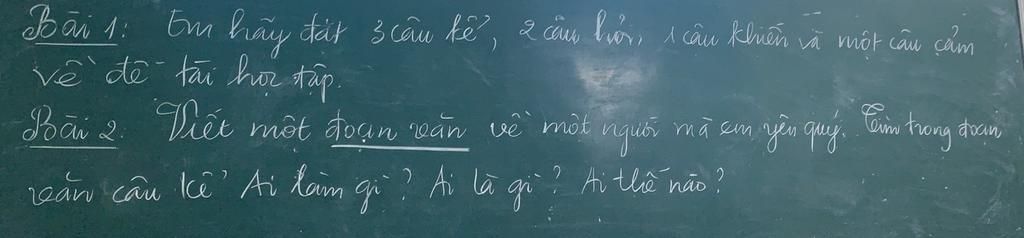 Bài 1: Em hãy đặt 3 câu kể, 2 câu hỏi, 1 câu khiến và một câu cảm
về đề tài học tập.
Bài 2. Viết một đoạn văn về một người mà em yêu quý. Tìm trong đoạn
văn câu kể Ai làm gì? Ai là gì? Ai thế nào?